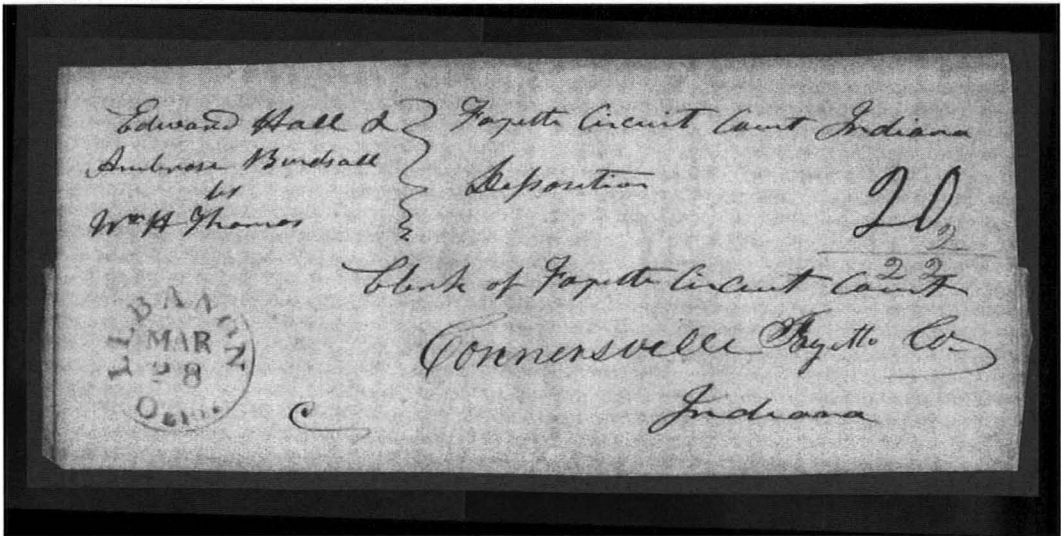 Edward Hall &
Ambrose Burdsall
vs
Wm H Thomas
Fayette Circuit Court Indiana
Deposition
20
2
22
Clerk of Fayette Circuit Court
Connersville Fayette Co
Indiana
LEBANON
MAR
28